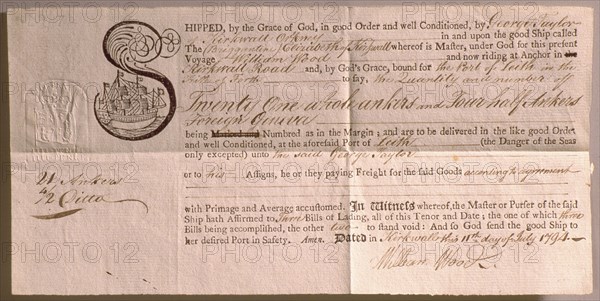 SHIPPED, by the Grace of God, in good Order and well Conditioned, by George Taylor
Kirkwall Orkney in and upon the good Ship called
The (Brigantine) Elizabeth of Kirkwall whereof is Master, under God for this present
Voyage William Wood and now riding at Anchor in the
Kirkwall Road and, by God's Grace, bound for the Port of Leith in the
Firth of Forth to say, The Quantity and number off
Twenty One whole ankers and Four half Ankers
Foreign Geneva
being Marked and Numbred as in the Margin; and are to be delivered in the like good Order
and well Conditioned, at the aforesaid Port of Leith (the Danger of the Seas
only excepted) unto the said George Taylor
or to his Assigns, he or they paying Freight for the said Goods according to agreement
21 Ankers
4/2 Ditto
with Primage and Average accustomed. In Witness whereof, the Master or Purser of the said
Ship hath Affirmed to Three Bills of Lading, all of this Tenor and Date; the one of which three
Bills being accomplished, the other two to stand void: And so God send the good Ship to
her desired Port in Safety. Amen. Dated in Kirkwall this 11th day of July 1794
William Wood